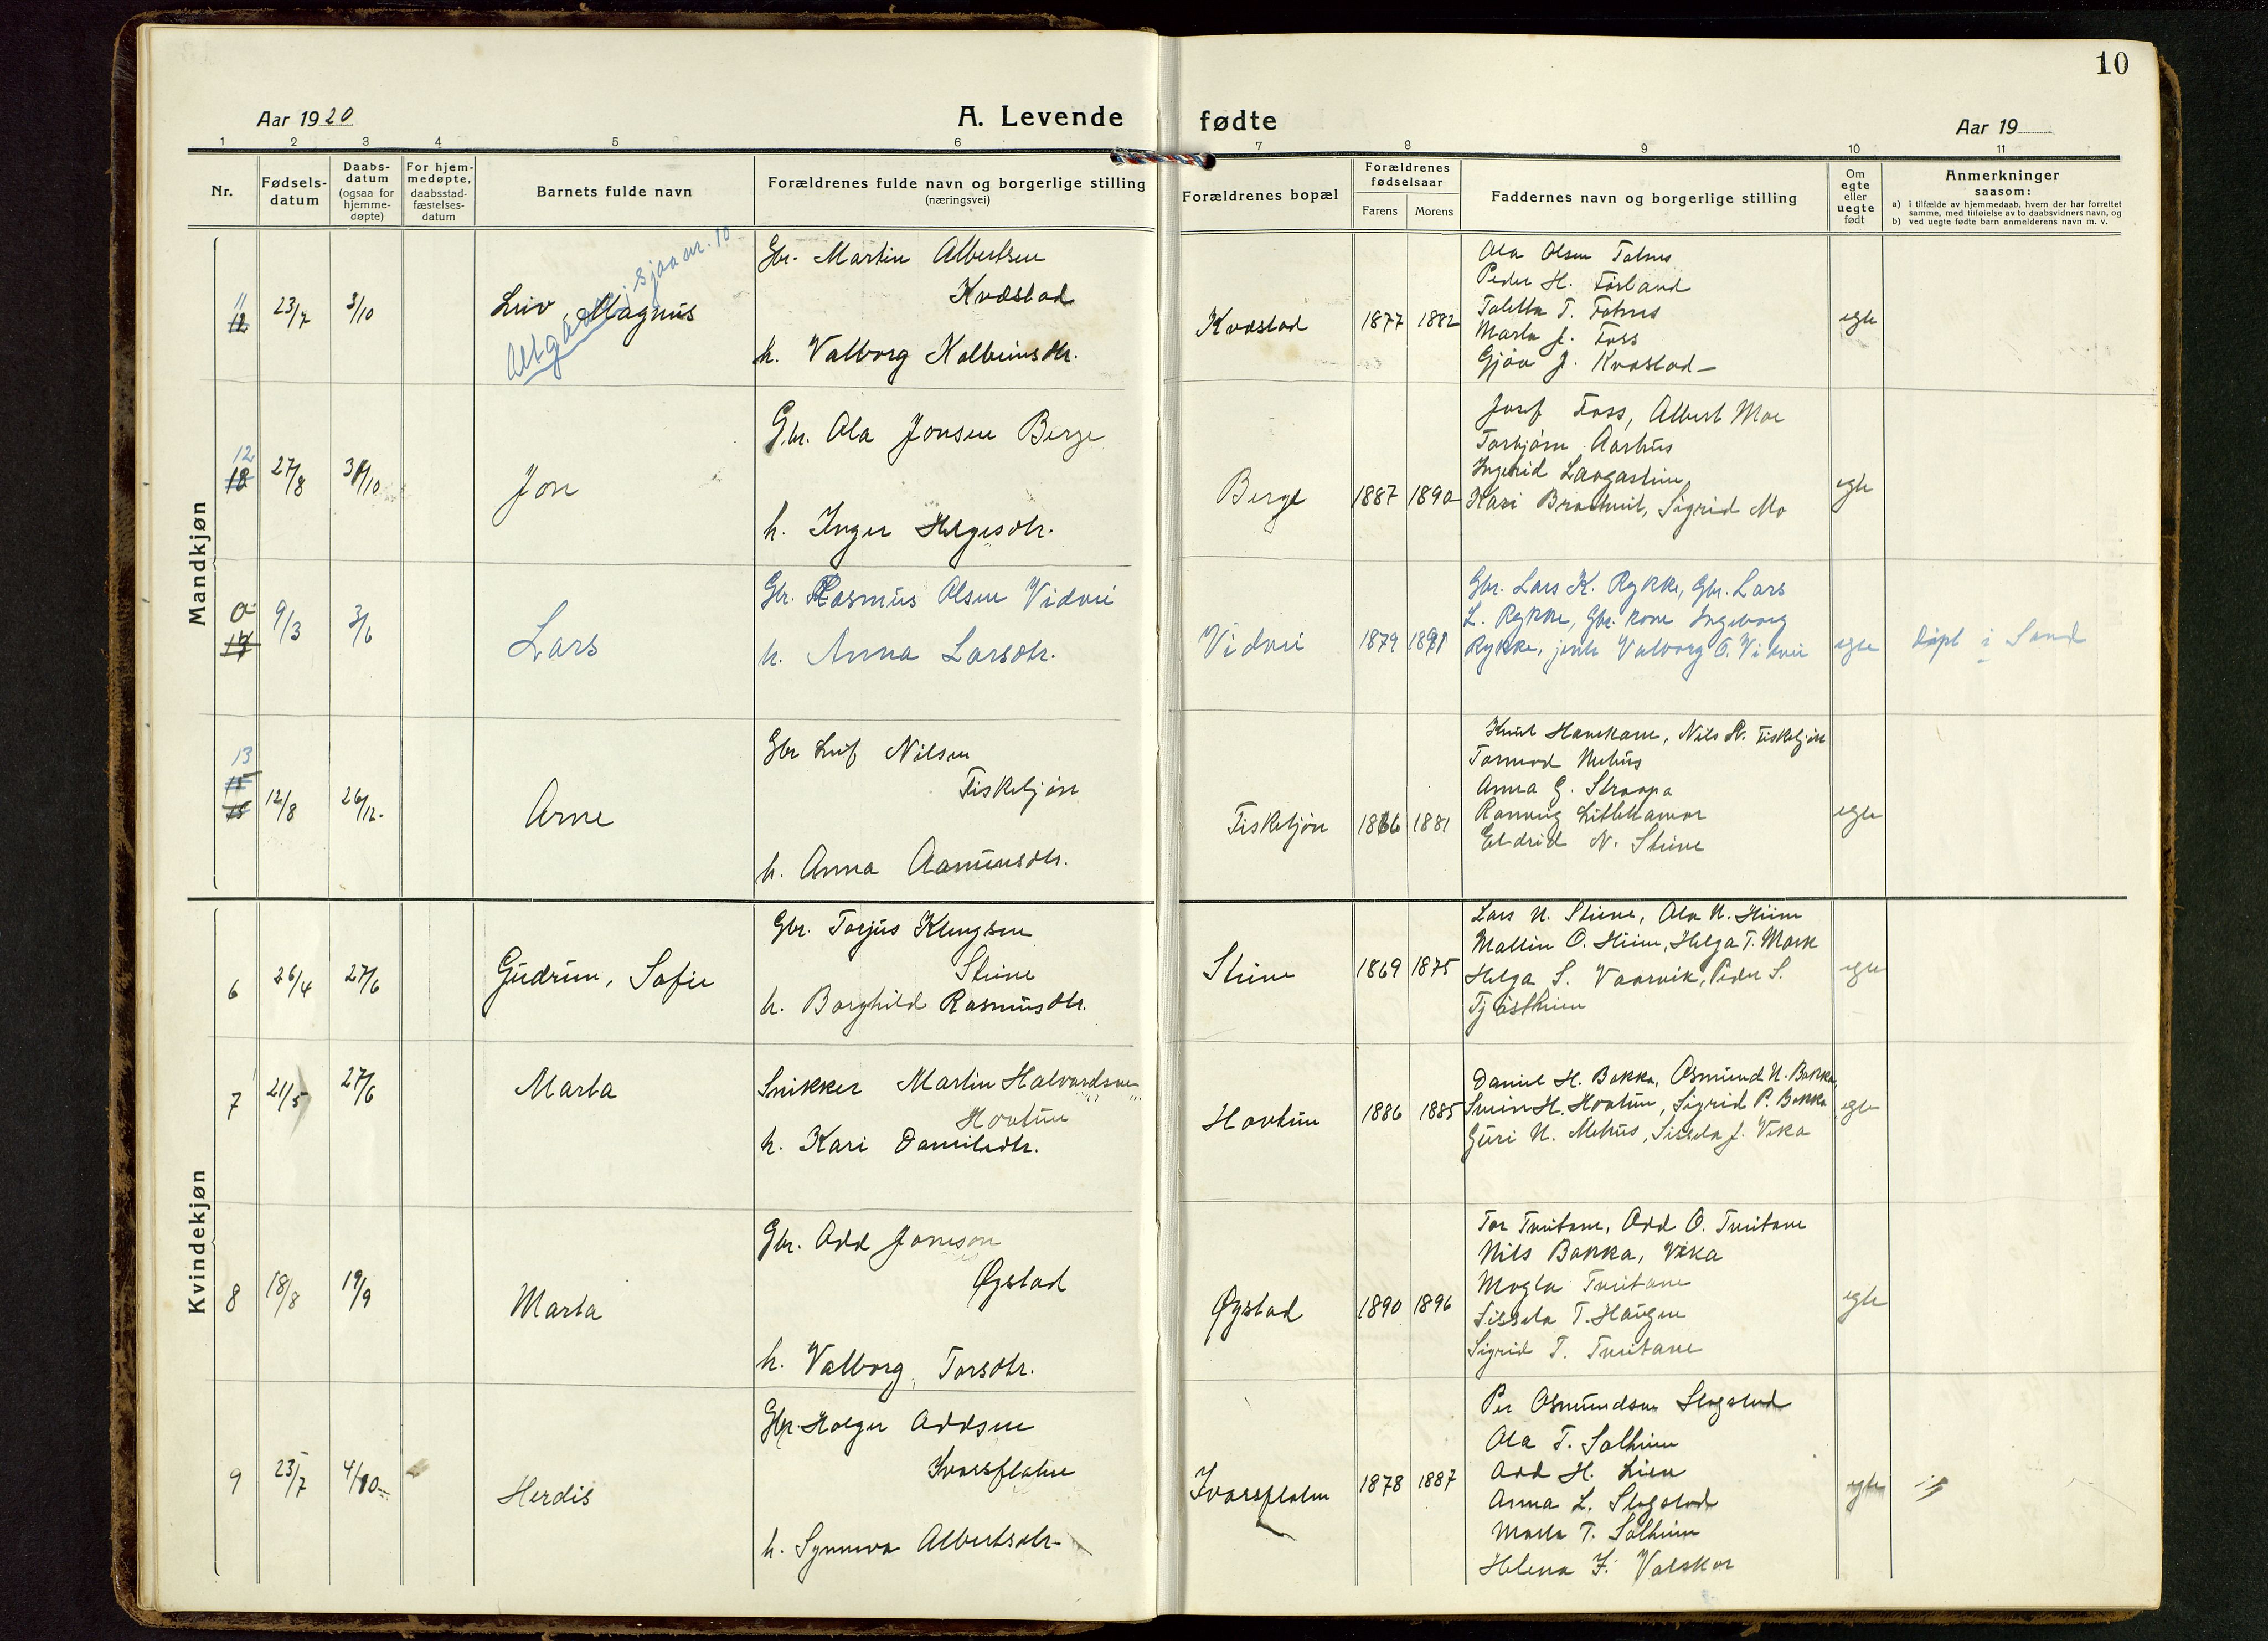 10
Aar 1920
A. Levende fødte
Aar 19
1 2 3 4 5 6 7 8 9 10 11
Nr.
Fødsels-
datum
Daabs-
datum
(ogsaa for
hjemme-
døpte)
For hjem-
medøpte,
daabsstad-
fæstelses-
datum
Barnets fulde navn
Forældrenes fulde navn og borgerlige stilling
(næringsvei)
Forældrenes bopæl
Forældrenes
fødselsaar
Farens Morens
Faddernes navn og borgerlige stilling
Om
egte
eller
uegte
født
Anmerkninger
saasom:
a) i tilfælde av hjemmedaab, hvem der har forrettet
samme, med tilføielse av to daabsvidners navn, og
b) ved uegte fødte barn anmelderens navn m. v.
Mandkjøn
11
23/7 3/10
Leiv, Magnus
sjaa nr. 10
Gbr. Martin Albertsen
Kvæstad
h. Valborg Kolbeinsdtr.
Kvæstad 1877 1882
Ola Olsen Fatnes
Peder H. Førland
Taletta T. Fatnes
Marta J. Foss
Gjøa J. Kvæstad
egte
12
27/8 31/10
Jon
Gbr. Ola Jonsen Berge
h. Inger Helgesdtr.
Berge 1887 1890
Josef Foss, Albert Moe
Torbjørn Aarhus
Ingerid Laagastein
Kari Bratveit, Sigrid Mo
egte
9/3 3/6
Lars
Gbr. Rasmus Olsen Vidvei
h. Anna Larsdtr.
Vidvei 1879 1891
Gbr. Lars K. Rykke, Gbr. Lars
L. Rykke, Gbr. kone Ingeborg
Rykke, jente Valborg O. Vidvei
egte
Døpt i Sand
13
15
12/8 26/12
Arne
Gbr Leif Nilsen
Fisketjøn
h. Anna Aamunsdtr.
Fisketjøn 1866 1881
Knut Hanekam, Nils R. Fisketjøn
Tormod Mehus
Anna G. Straapa
Ranveig Littlehamar
Eldrid N. Steine
egte
Kvindekjøn
6 26/4 27/6
Gudrun, Sofie
Gbr. Torjus Klengsen
Steine
h. Borghild Rasmusdtr.
Steine 1869 1875
Lars N. Steine, Ola N. Hiim
Mallin O. Hiim, Helga T. Mork
Helga S. Vaarvik, Peder S.
Tjøstheim
egte
7 21/5 27/6
Marta
Snikker Martin Halvardsen
Hovtun
h. Kari Danielsdtr.
Hovtun 1886 1885
Daniel H. Bakka, Osmund N. Bakka
Svein H. Hovtun, Sigrid P. Bakka
Guri N. Mehus, Sissela J. Vika
egte
8 18/8 19/9
Marta
Gbr. Odd Joneson
Øystad
h. Valborg Torsdtr.
Øystad 1890 1896
Tor Tveitane, Odd O. Tveitane
Nils Bakka, Vika
Magla Tveitane
Sissela T. Haugen
Sigrid T. Tveitane
egte
9 23/7 4/10
Herdis
Gbr. Holger Oddsen
Ivarsflaten
h. Synneva Albertsdtr.
Ivarsflaten 1878 1887
Per Osmundsen Slogstad
Ola T. Solheim
Odd H. Lien
Anna L. Slogstad
Marta T. Solheim
Helena F. Valskar
egte